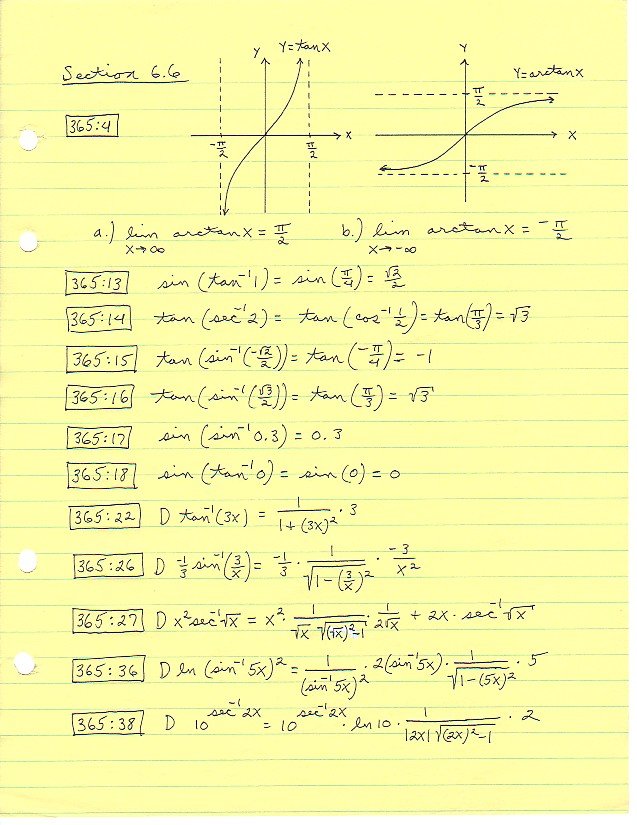 Section 6.6
Y Y=tanX
X
-π/2 π/2
Y
Y=arctanX
π/2
X
-π/2
365:4
a.) lim x→∞ arctanX = π/2 b.) lim x→-∞ arctanX = -π/2
365:13 sin (tan⁻¹1) = sin (π/4) = √2/2
365:14 tan (sec⁻¹2) = tan (cos⁻¹ 1/2) = tan(π/3) = √3
365:15 tan (sin⁻¹(-√2/2)) = tan (-π/4) = -1
365:16 tan (sin⁻¹(√3/2)) = tan (π/3) = √3
365:17 sin (sin⁻¹0.3) = 0.3
365:18 sin (tan⁻¹0) = sin (0) = 0
365:22 D tan⁻¹(3x) = 1/(1+(3x)²) · 3
365:26 D -1/3 sin⁻¹(3/x) = -1/3 · 1/√(1-(3/x)²) · -3/x²
365:27 D x² sec⁻¹√x = x² · 1/(√x √((√x)²-1)) · 1/(2√x) + 2x · sec⁻¹√x
365:36 D ln (sin⁻¹5x)² = 1/(sin⁻¹5x)² · 2(sin⁻¹5x) · 1/√(1-(5x)²) · 5
365:38 D 10^(sec⁻¹2x) = 10^(sec⁻¹2x) · ln 10 · 1/(|2x|√((2x)²-1)) · 2